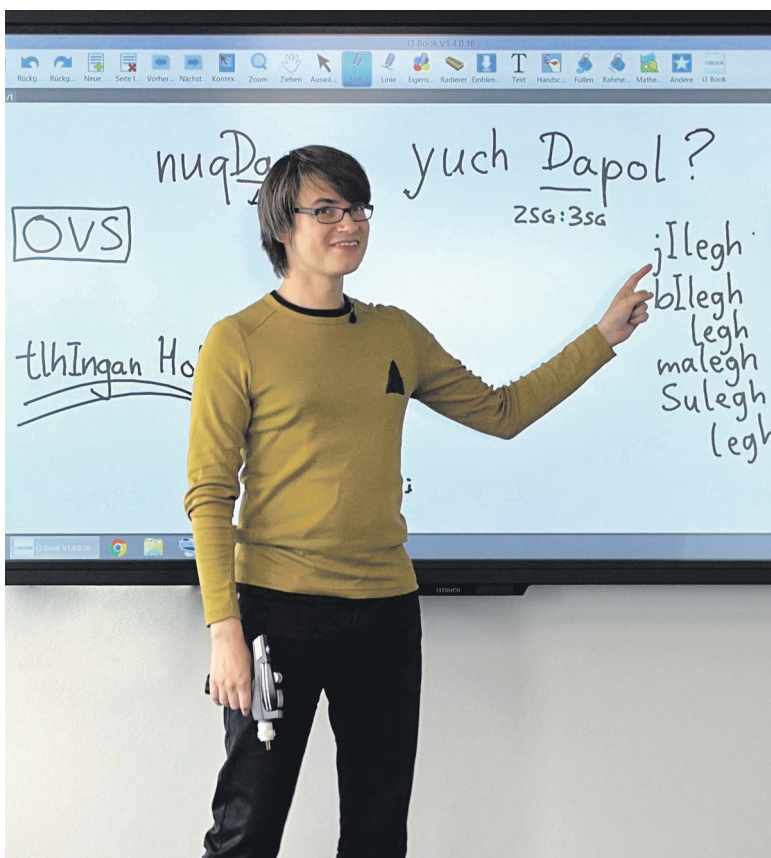 i3 Book V1.4.0.16
Rückg... Rückg... Neue... Seite l... Vorher... Nächst... Kontex Zoom Ziehen Auswä... Linie Eigens... Radierer Einblen... Text Handsc... Füllen Rahme... Mathe... Andere i3 Book
/1
nuqDa yuch Dapol?
2SG:3SG
OVS
jIlegh
bIlegh
legh
tlhIngan Ho
malegh
Sulegh
legh
i3 Book V1.4.0.16
i3TOUCH